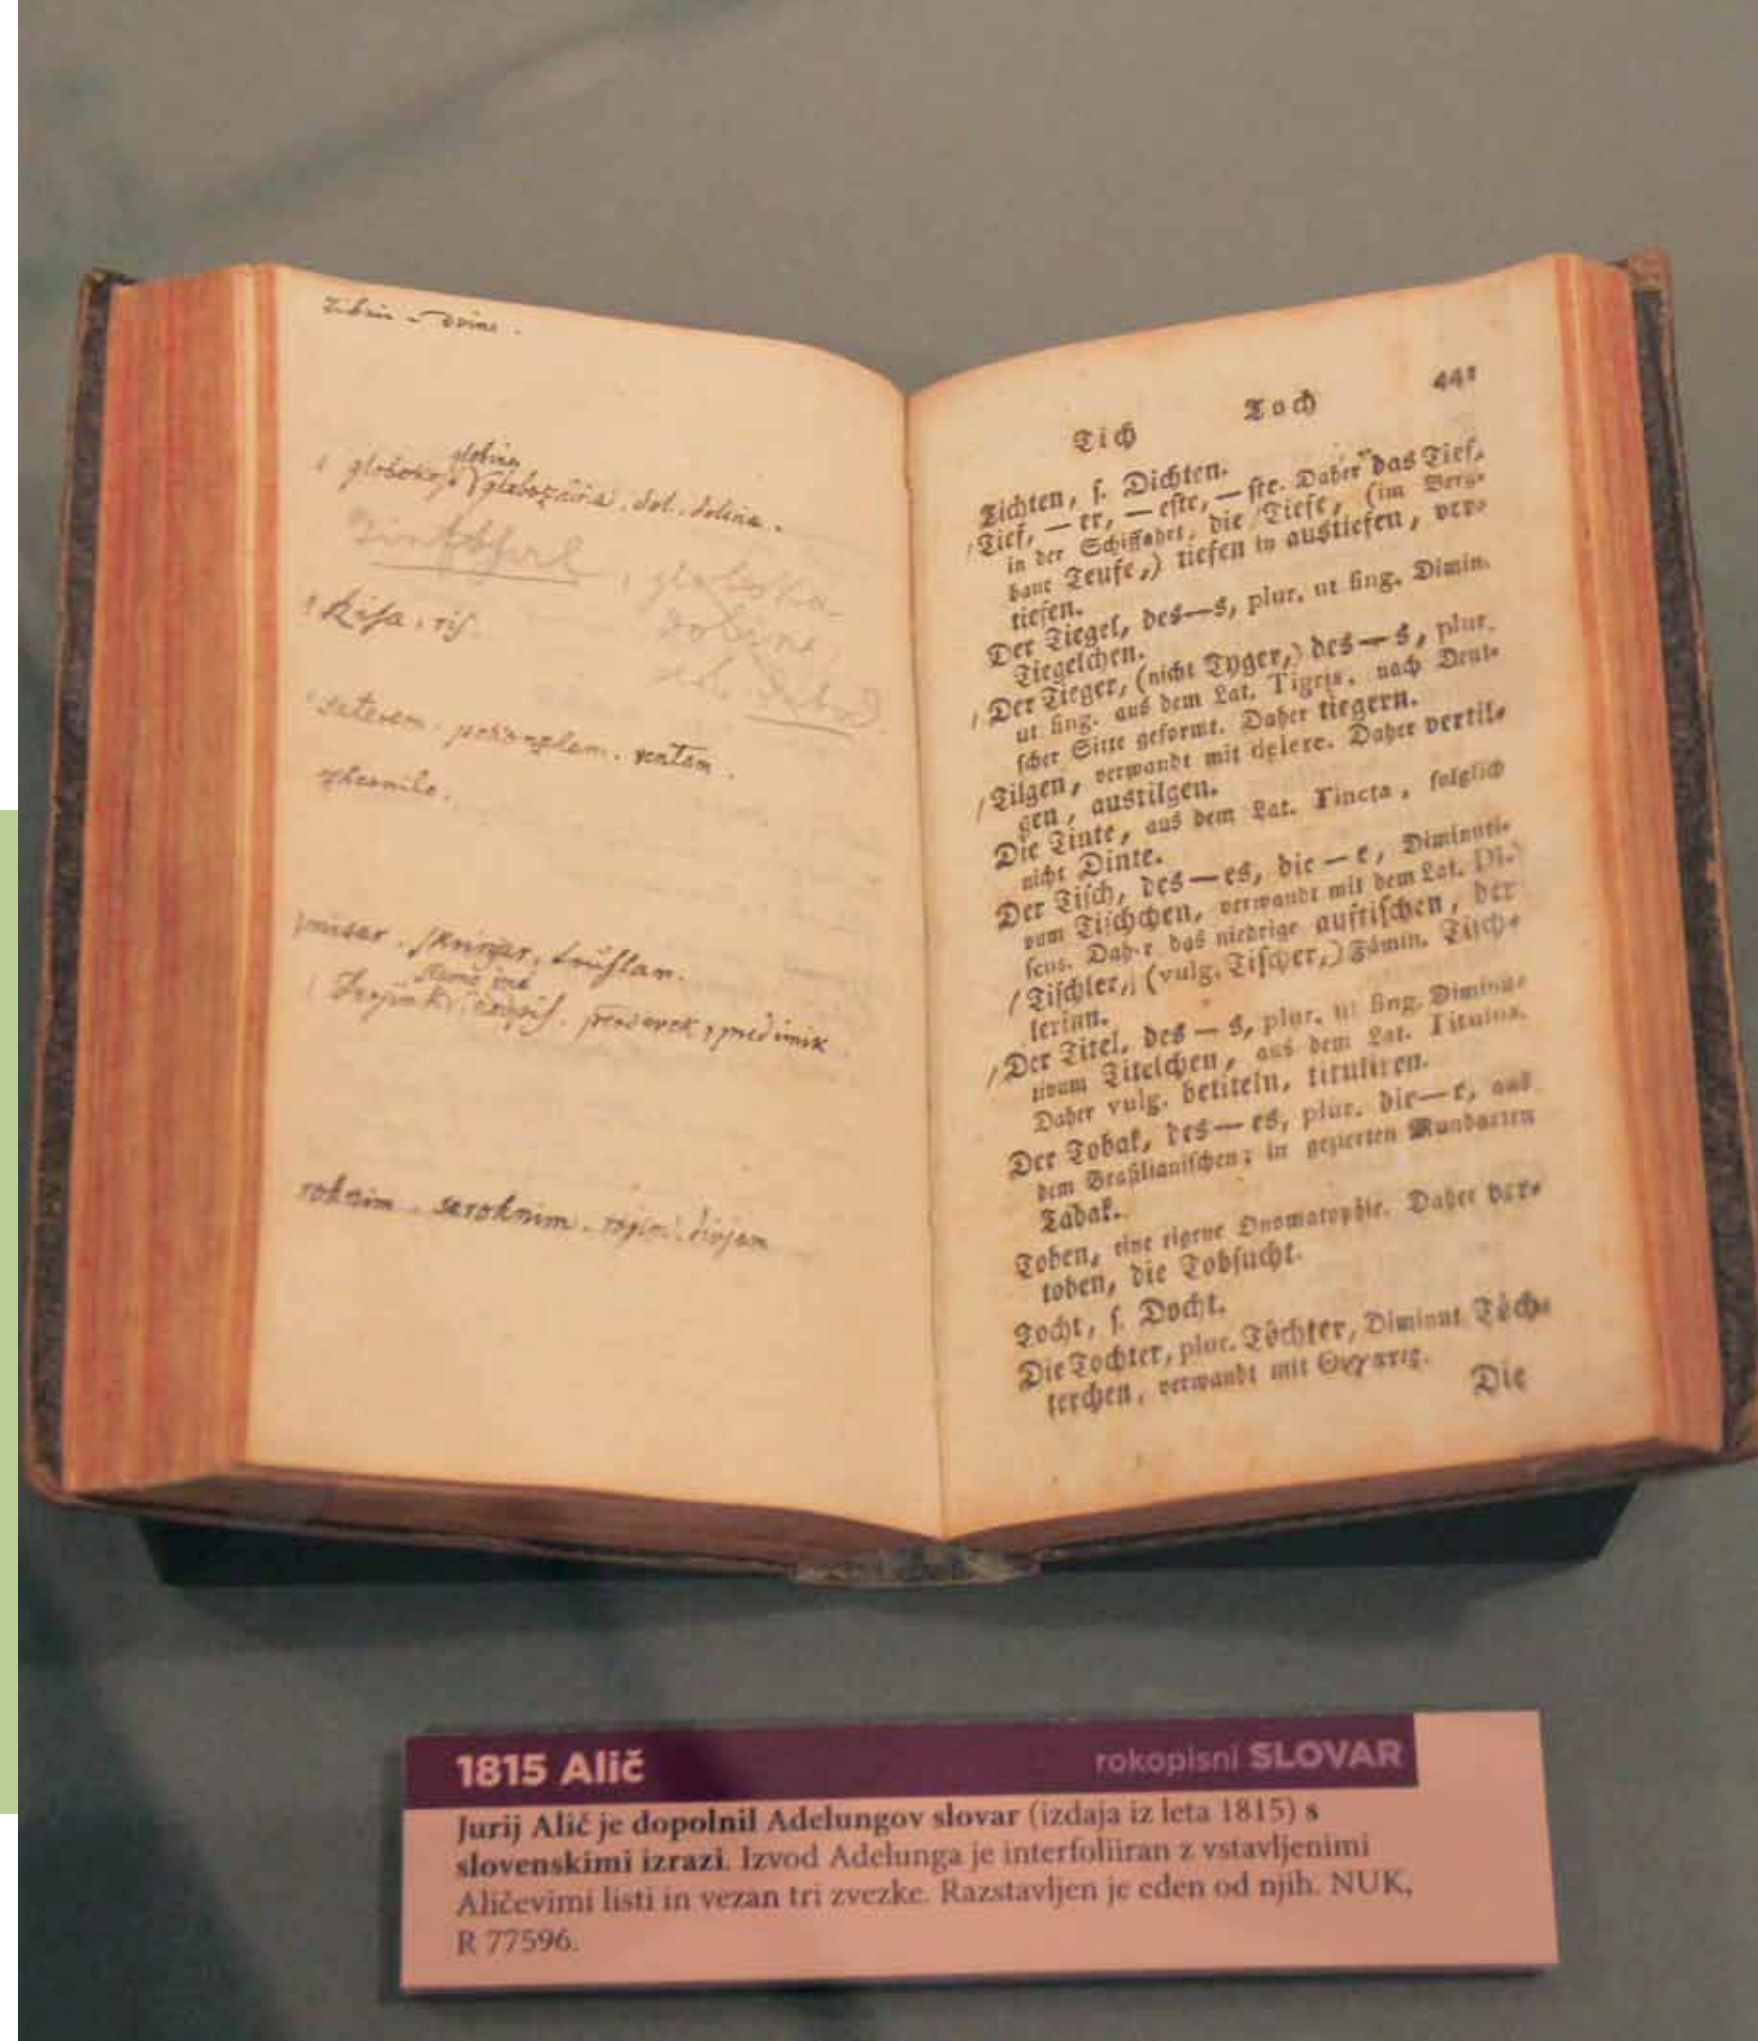 globine
globoko globozhina . dol . dolina .
Kisa , ris .
zhernilo .
roknim . saroknim . divjam
Tich Toch 441
Tichten, ſ. Dichten.
Tief, — er, — eſte, — ſte. Daher das Tief,
in der Schiffahrt, die Tiefe, (im Berg-
baue Teufe,) tiefen in austiefen, ver-
tiefen.
Der Tiegel, des—s, plur. ut ſing. Dimin.
Tiegelchen.
Der Tieger, (nicht Tyger,) des—s, plur.
ut ſing. aus dem Lat. Tigris, nach Deut-
ſcher Sitte geformt. Daher tiegern.
Tilgen, verwandt mit delere. Daher vertil-
gen, austilgen.
Die Tinte, aus dem Lat. Tincta, folglich
nicht Dinte.
Der Tiſch, des—es, die—e, Diminuti-
vum Tiſchchen, verwandt mit dem Lat. Di-
ſcus. Daher das niedrige auftiſchen, der
Tiſchler, (vulg. Tiſcher,) Fämin. Tiſch-
lerinn.
Der Titel, des—s, plur. ut ſing. Diminu-
tivum Titelchen, aus dem Lat. Titulus.
Daher vulg. betiteln, tituliren.
Der Tobak, des—es, plur. die—e, aus
dem Braſilianiſchen; in gezierten Mundarten
Tabak.
Toben, eine eigene Onomatopöie. Daher ver-
toben, die Tobſucht.
Tocht, ſ. Docht.
Die Tochter, plur. Töchter, Diminut. Töch-
terchen, verwandt mit Θυγατηρ.
Die
1815 Alič rokopisni SLOVAR
Jurij Alič je dopolnil Adelungov slovar (izdaja iz leta 1815) s
slovenskimi izrazi. Izvod Adelunga je interfoliiran z vstavljenimi
Aličevimi listi in vezan tri zvezke. Razstavljen je eden od njih. NUK,
R 77596.